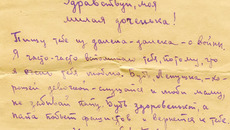 Здравствуй, моя
милая доченька!
Пишу тебе из далека-далека - с войны.
Я часто-часто вспоминаю тебя, потому, что
я очень тебя люблю. Будь, Ленушка, хо-
рошей девочкой - слушайся и люби маму,
не забывай папу, будь здоровенькой, а
папа побьет фашистов и вернется к тебе.